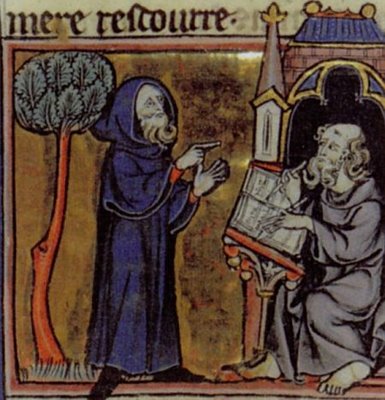 mere rescourre.